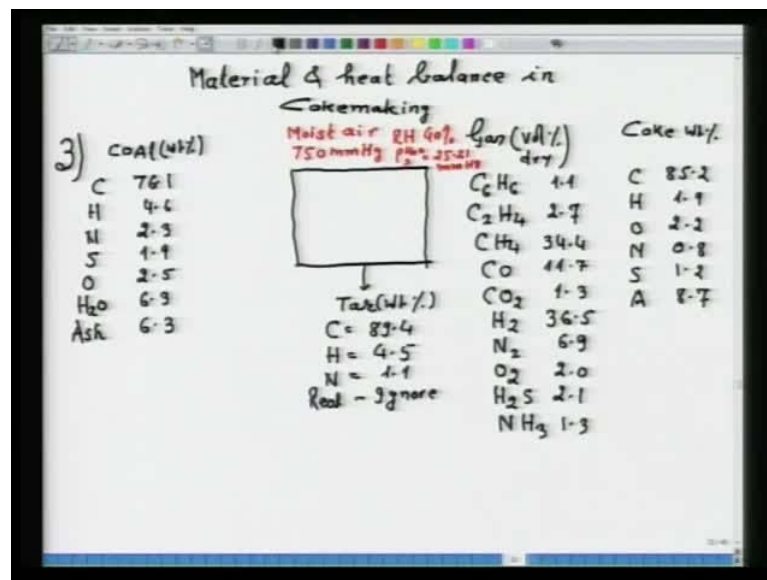 Material & heat balance in
Cokemaking
3)
COAl (wt%)
C 76.1
H 4.6
N 2.3
S 1.9
O 2.5
H2O 6.9
Ash 6.3
Moist air RH 40%
750 mm Hg
25.21
mm Hg
Tar (wt%)
C = 89.4
H = 4.5
N = 1.1
Rest - Ignore
Gas (vol% dry)
C6H6 1.1
C2H4 2.7
CH4 34.4
CO 11.7
CO2 1.3
H2 36.5
N2 6.9
O2 2.0
H2S 2.1
NH3 1.3
Coke wt%
C 85.2
H 1.9
O 2.2
N 0.8
S 1.2
A 8.7